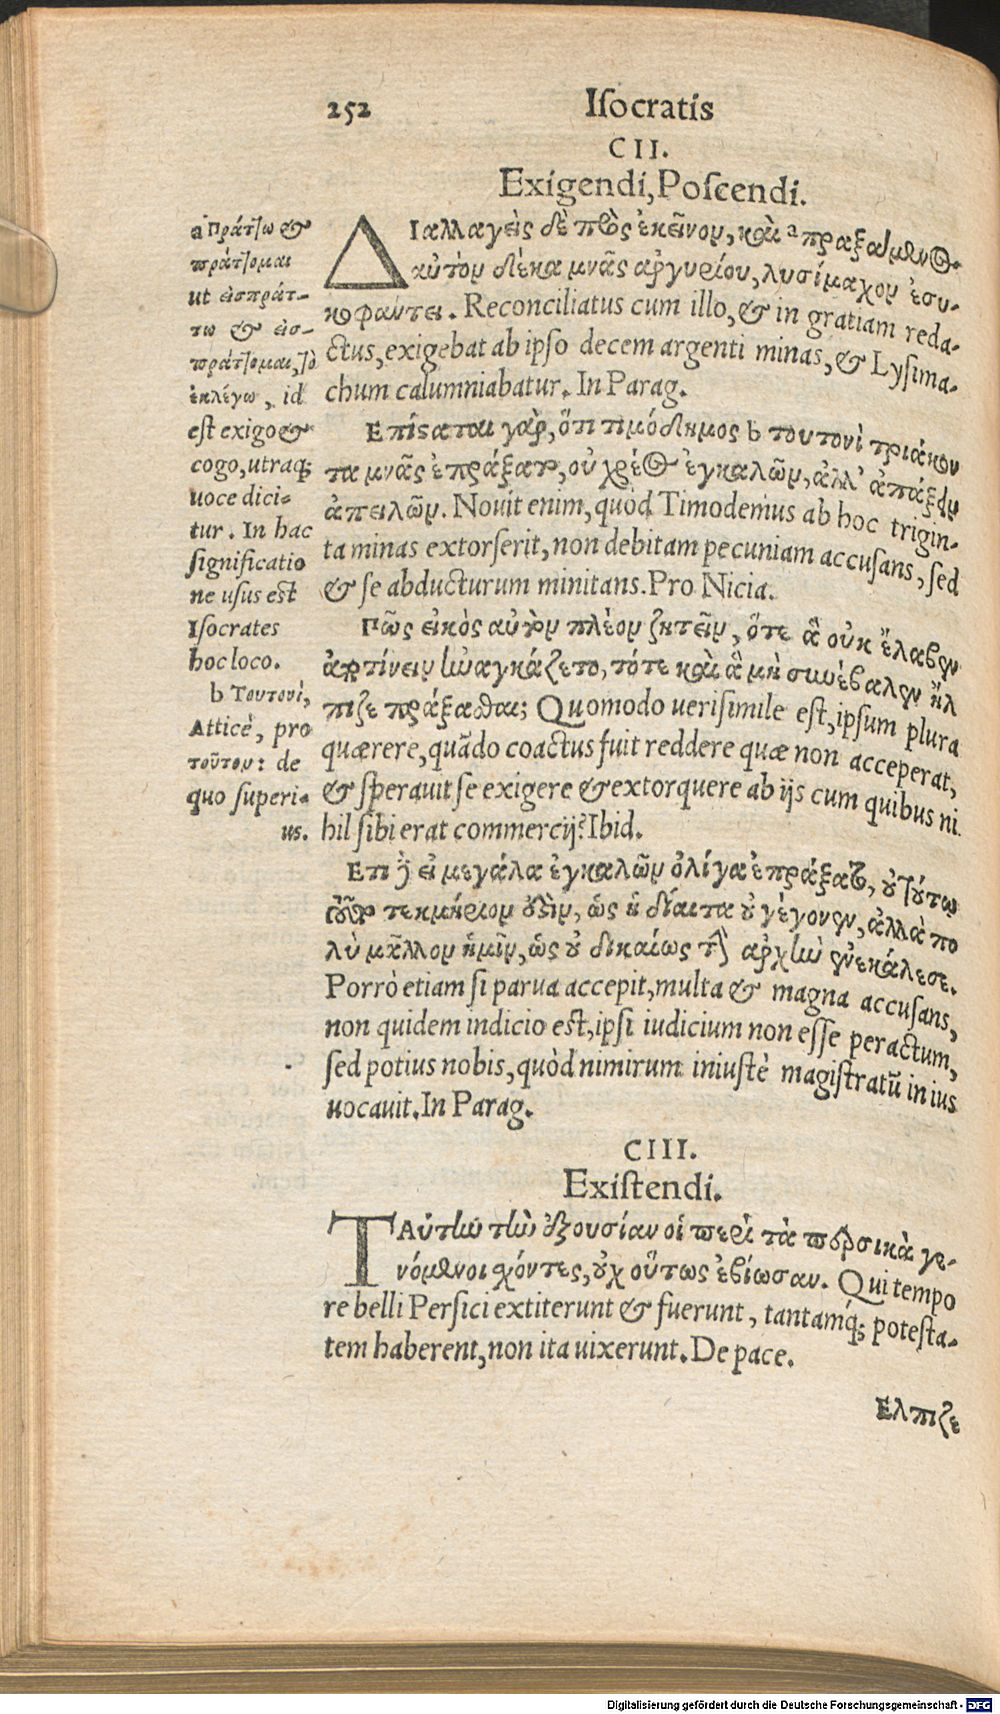 252 Iſocratis
CII.
Exigendi, Poſcendi.
Διαλλαγεὶς δὲ πρὸς ἐκεῖνον, καὶ a πραξάμενος
αὐτὸν δέκα μνᾶς ἀργυρίου, λυσίμαχον ἐσυ-
κοφάντει. Reconciliatus cum illo, & in gratiam reda-
ctus, exigebat ab ipſo decem argenti minas, & Lyſima-
chum calumniabatur. In Parag.
Επίσαται γὰρ, ὅτι τιμόδημος b τουτονὶ τριάκον
τα μνᾶς ἐπράξατο, οὐ χρέος ἐγκαλῶν, ἀλλ' ἀπάξειν
ἀπειλῶν. Nouit enim, quòd Timodemus ab hoc trigin-
ta minas extorſerit, non debitam pecuniam accuſans, ſed
& ſe abducturum minitans. Pro Nicia.
Πῶς εἰκὸς αὐτὸν πλέον ζητεῖν, ὅτε ἃ οὐκ ἔλαβεν
ἀποτίνειν ἠναγκάζετο, τότε καὶ ἃ μὴ συνέβαλεν ἤλ
πιζε πράξασθαι; Quomodo ueriſimile eſt, ipſum plura
quærere, quādo coactus fuit reddere quæ non acceperat,
& ſperauit ſe exigere & extorquere ab ijs cum quibus ni
hil ſibi erat commercij? Ibid.
Επι δὲ εἰ μεγάλα ἐγκαλῶν ὀλίγα ἐπράξατο, οὐ τούτῳ
τεκμήριον ὅτι, ὡς ἡ δίαιτα οὐ γέγονεν, ἀλλὰ πο
λὺ μᾶλλον ἡμῖν, ὡς οὐ δικαίως τὴν ἀρχὴν ἐνεκάλεσε.
Porrò etiam ſi parua accepit, multa & magna accuſans,
non quidem indicio eſt, ipſi iudicium non eſſe peractum,
ſed potius nobis, quòd nimirum iniuſtè magiſtratū in ius
uocauit. In Parag.
CIII.
Exiſtendi.
Ταύτην τὴν ἐξουσίαν οἱ περὶ τὰ περσικὰ γε-
νόμενοι ἔχοντες, οὐχ οὕτως ἐβίωσαν. Qui tempo
re belli Perſici extiterunt & fuerunt, tantamq́; poteſta-
tem haberent, non ita uixerunt. De pace.
Ελπιζε
a Πράττω &
πράττομαι
ut εἰσπράτ-
τω & εἰσ-
πράττομαι, τὸ
ἐκλέγω, id
eſt exigo &
cogo, utraq;
uoce dici-
tur. In hac
ſignificatio
ne uſus eſt
Iſocrates
hoc loco.
b Τουτονὶ,
Atticè, pro
τοῦτον: de
quo ſuperi-
us.
Digitalisierung gefördert durch die Deutsche Forschungsgemeinschaft - DFG